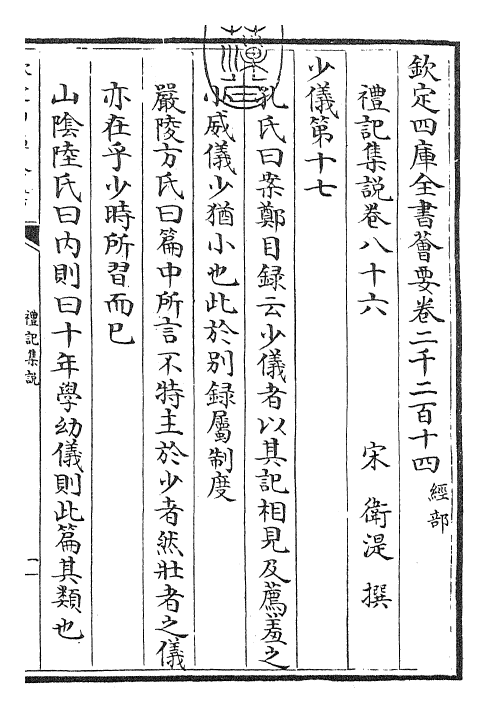 欽定四庫全書薈要卷二千二百十四 經部
禮記集說卷八十六 宋 衛湜 撰
少儀第十七
孔氏曰案鄭目録云少儀者以其記相見及薦羞之
小威儀少猶小也此於别録屬制度
嚴陵方氏曰篇中所言不特主於少者然壯者之儀
亦在乎少時所習而已
山陰陸氏曰内則曰十年學幼儀則此篇其類也
禮記集說
一